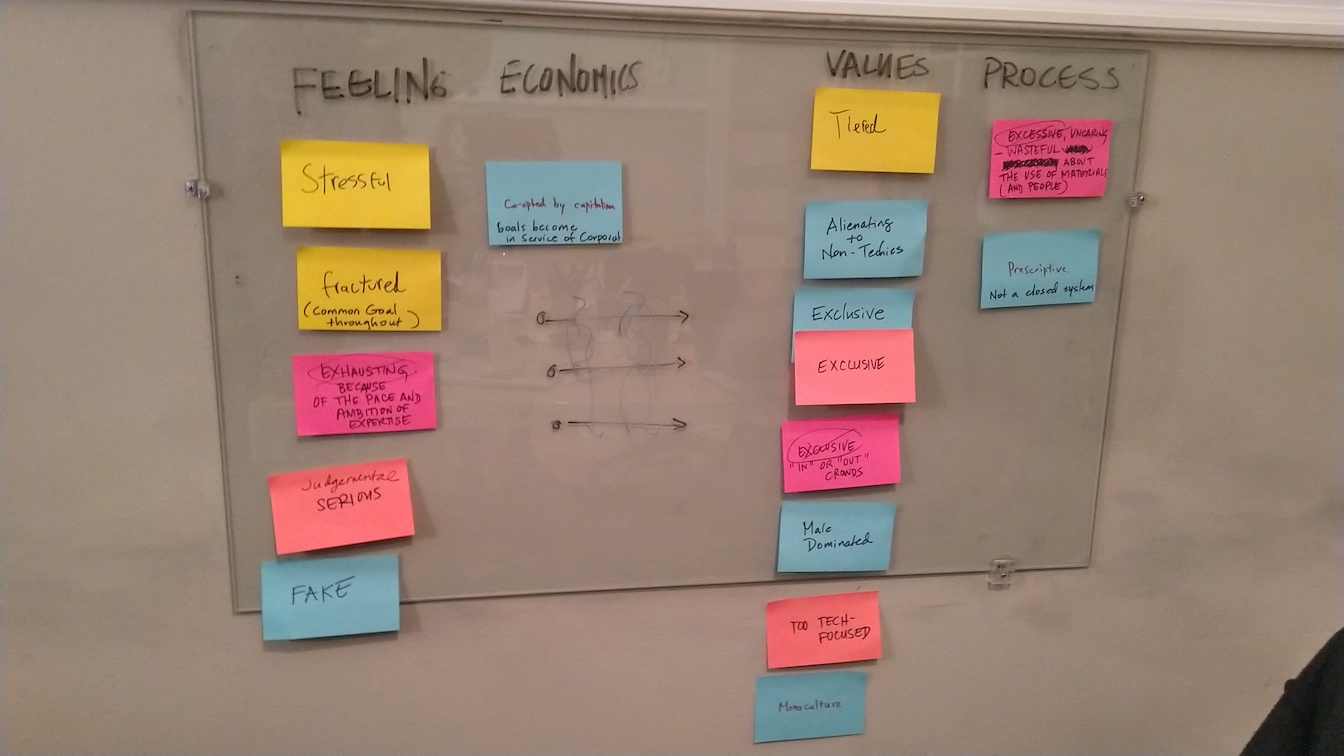 FEELING
Stressful
fractured
(Common Goal
throughout)
EXHAUSTING
BECAUSE
OF THE PACE AND
AMBITION OF
EXPERTISE
Judgemental
SERIOUS
FAKE
ECONOMICS
Co-opted by capitalism
Goals become
in service of Corporat
VALUES
Tiered
Alienating
to
Non-Techies
Exclusive
EXCLUSIVE
EXCLUSIVE
"IN" OR "OUT"
CROWDS
Male
Dominated
TOO TECH-
FOCUSED
Monoculture
PROCESS
EXCESSIVE, UNCARING
- WASTEFUL
ABOUT
THE USE OF MATERIALS
(AND PEOPLE)
Prescriptive
Not a closed system